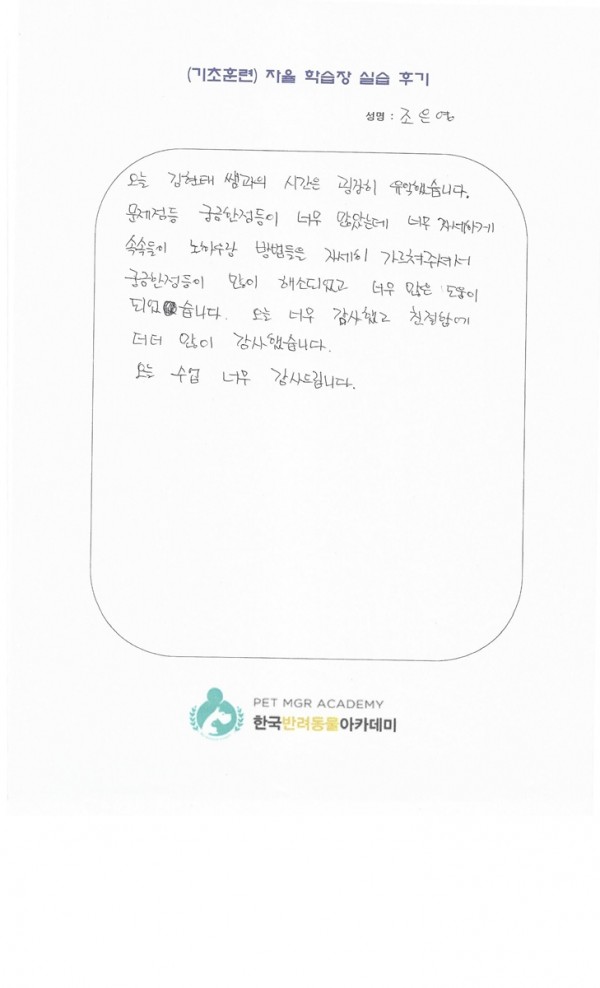 (기초훈련) 자율 학습장 실습 후기
성명 : 조은영
오늘 김현태 쌤과의 시간은 굉장히 유익했습니다.
문제점등 궁금한점등이 너무 많았는데 너무 자세하게
속속들이 노하우랑 방법들을 자세히 가르쳐주셔서
궁금한점등이 많이 해소되었고 너무 많은 도움이
되었습니다. 오늘 너무 감사했고 친절함에
더더 많이 감사했습니다.
오늘 수업 너무 감사드립니다.
PET MGR ACADEMY
한국반려동물아카데미